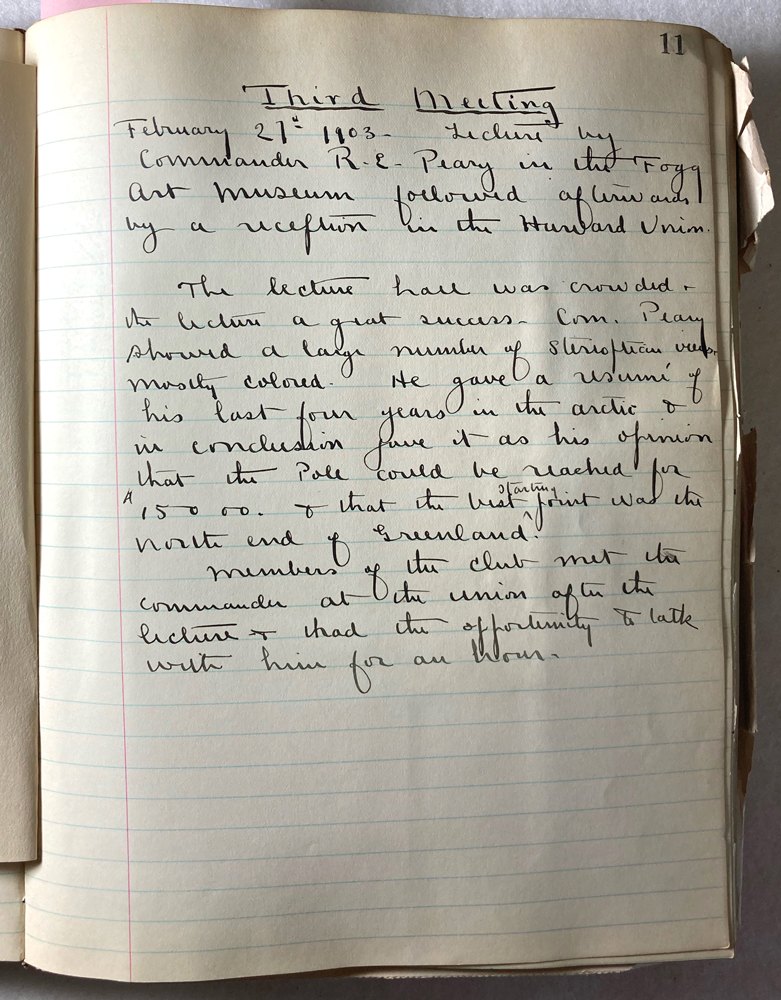 11
Third Meeting
February 27th 1903 - Lecture by
Commander R. E. Peary in the Fogg
Art Museum followed afterwards
by a reception in the Harvard Union.
The lecture hall was crowded &
the lecture a great success - Com. Peary
showed a large number of sterioptian views,
mostly colored. He gave a resumé of
his last four years in the arctic &
in conclusion gave it as his opinion
that the Pole could be reached for
150 00. & that the best starting point was the
north end of Greenland.
Members of the club met the
commander at the union after the
lecture & had the opportunity to talk
with him for an hour.